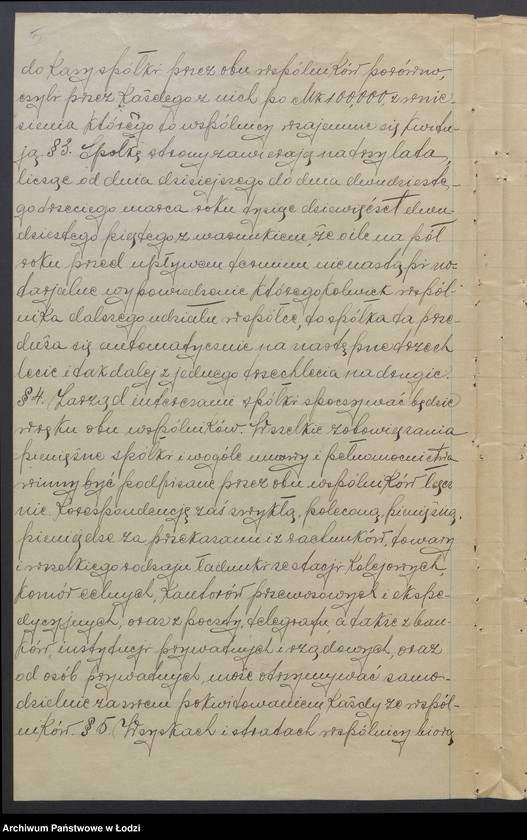 do kasy spółki przez obu wspólników porówno,
czyli przez każdego z nich po Mk 100,000, z wnie-
sienia którego to wspólnicy wzajemnie się kwitu-
ją. § 3. Spółkę strony zawierają na trzy lata,
licząc od dnia dzisiejszego do dnia dwudzieste-
go trzeciego marca roku tysiąc dziewięćset dwu-
dziestego piątego z warunkiem, że o ile na pół
roku przed upływem terminu nie nastąpi no-
tarjalne wypowiedzenie któregokolwiek wspól-
nika dalszego udziału w spółce, to spółka ta prze-
dłuża się automatycznie na następne trzech
lecie i tak dalej z jednego trzechlecia na drugie.
§ 4. Zarząd interesami spółki spoczywać będzie
w ręku obu wspólników. Wszelkie zobowiązania
pieniężne spółki i wogóle umowy i pełnomocnictwa
winny być podpisane przez obu wspólników łącz-
nie. Korespondencję zaś zwykłą, poleconą, pieniężną,
pieniądze za przekazami i z rachunków, towary
i wszelkiego rodzaju ładunki ze stacji kolejowych,
komór celnych, kantorów przewozowych i ekspe-
dycyjnych, oraz z poczty, telegrafu, a także z ban-
ków, instytucji prywatnych i rządowych, oraz
od osób prywatnych, może otrzymywać samo-
dzielnie za swem pokwitowaniem każdy ze wspól-
ników. § 5. W zyskach i stratach wspólnicy biorą
Archiwum Państwowe w Łodzi